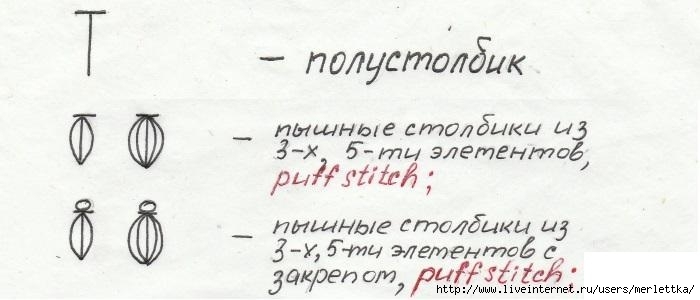 – полустолбик
– пышные столбики из
3-х, 5-ти элементов,
puff stitch;
– пышные столбики из
3-х, 5-ти элементов с
закрепом, puff stitch.
http://www.liveinternet.ru/users/merlettka/